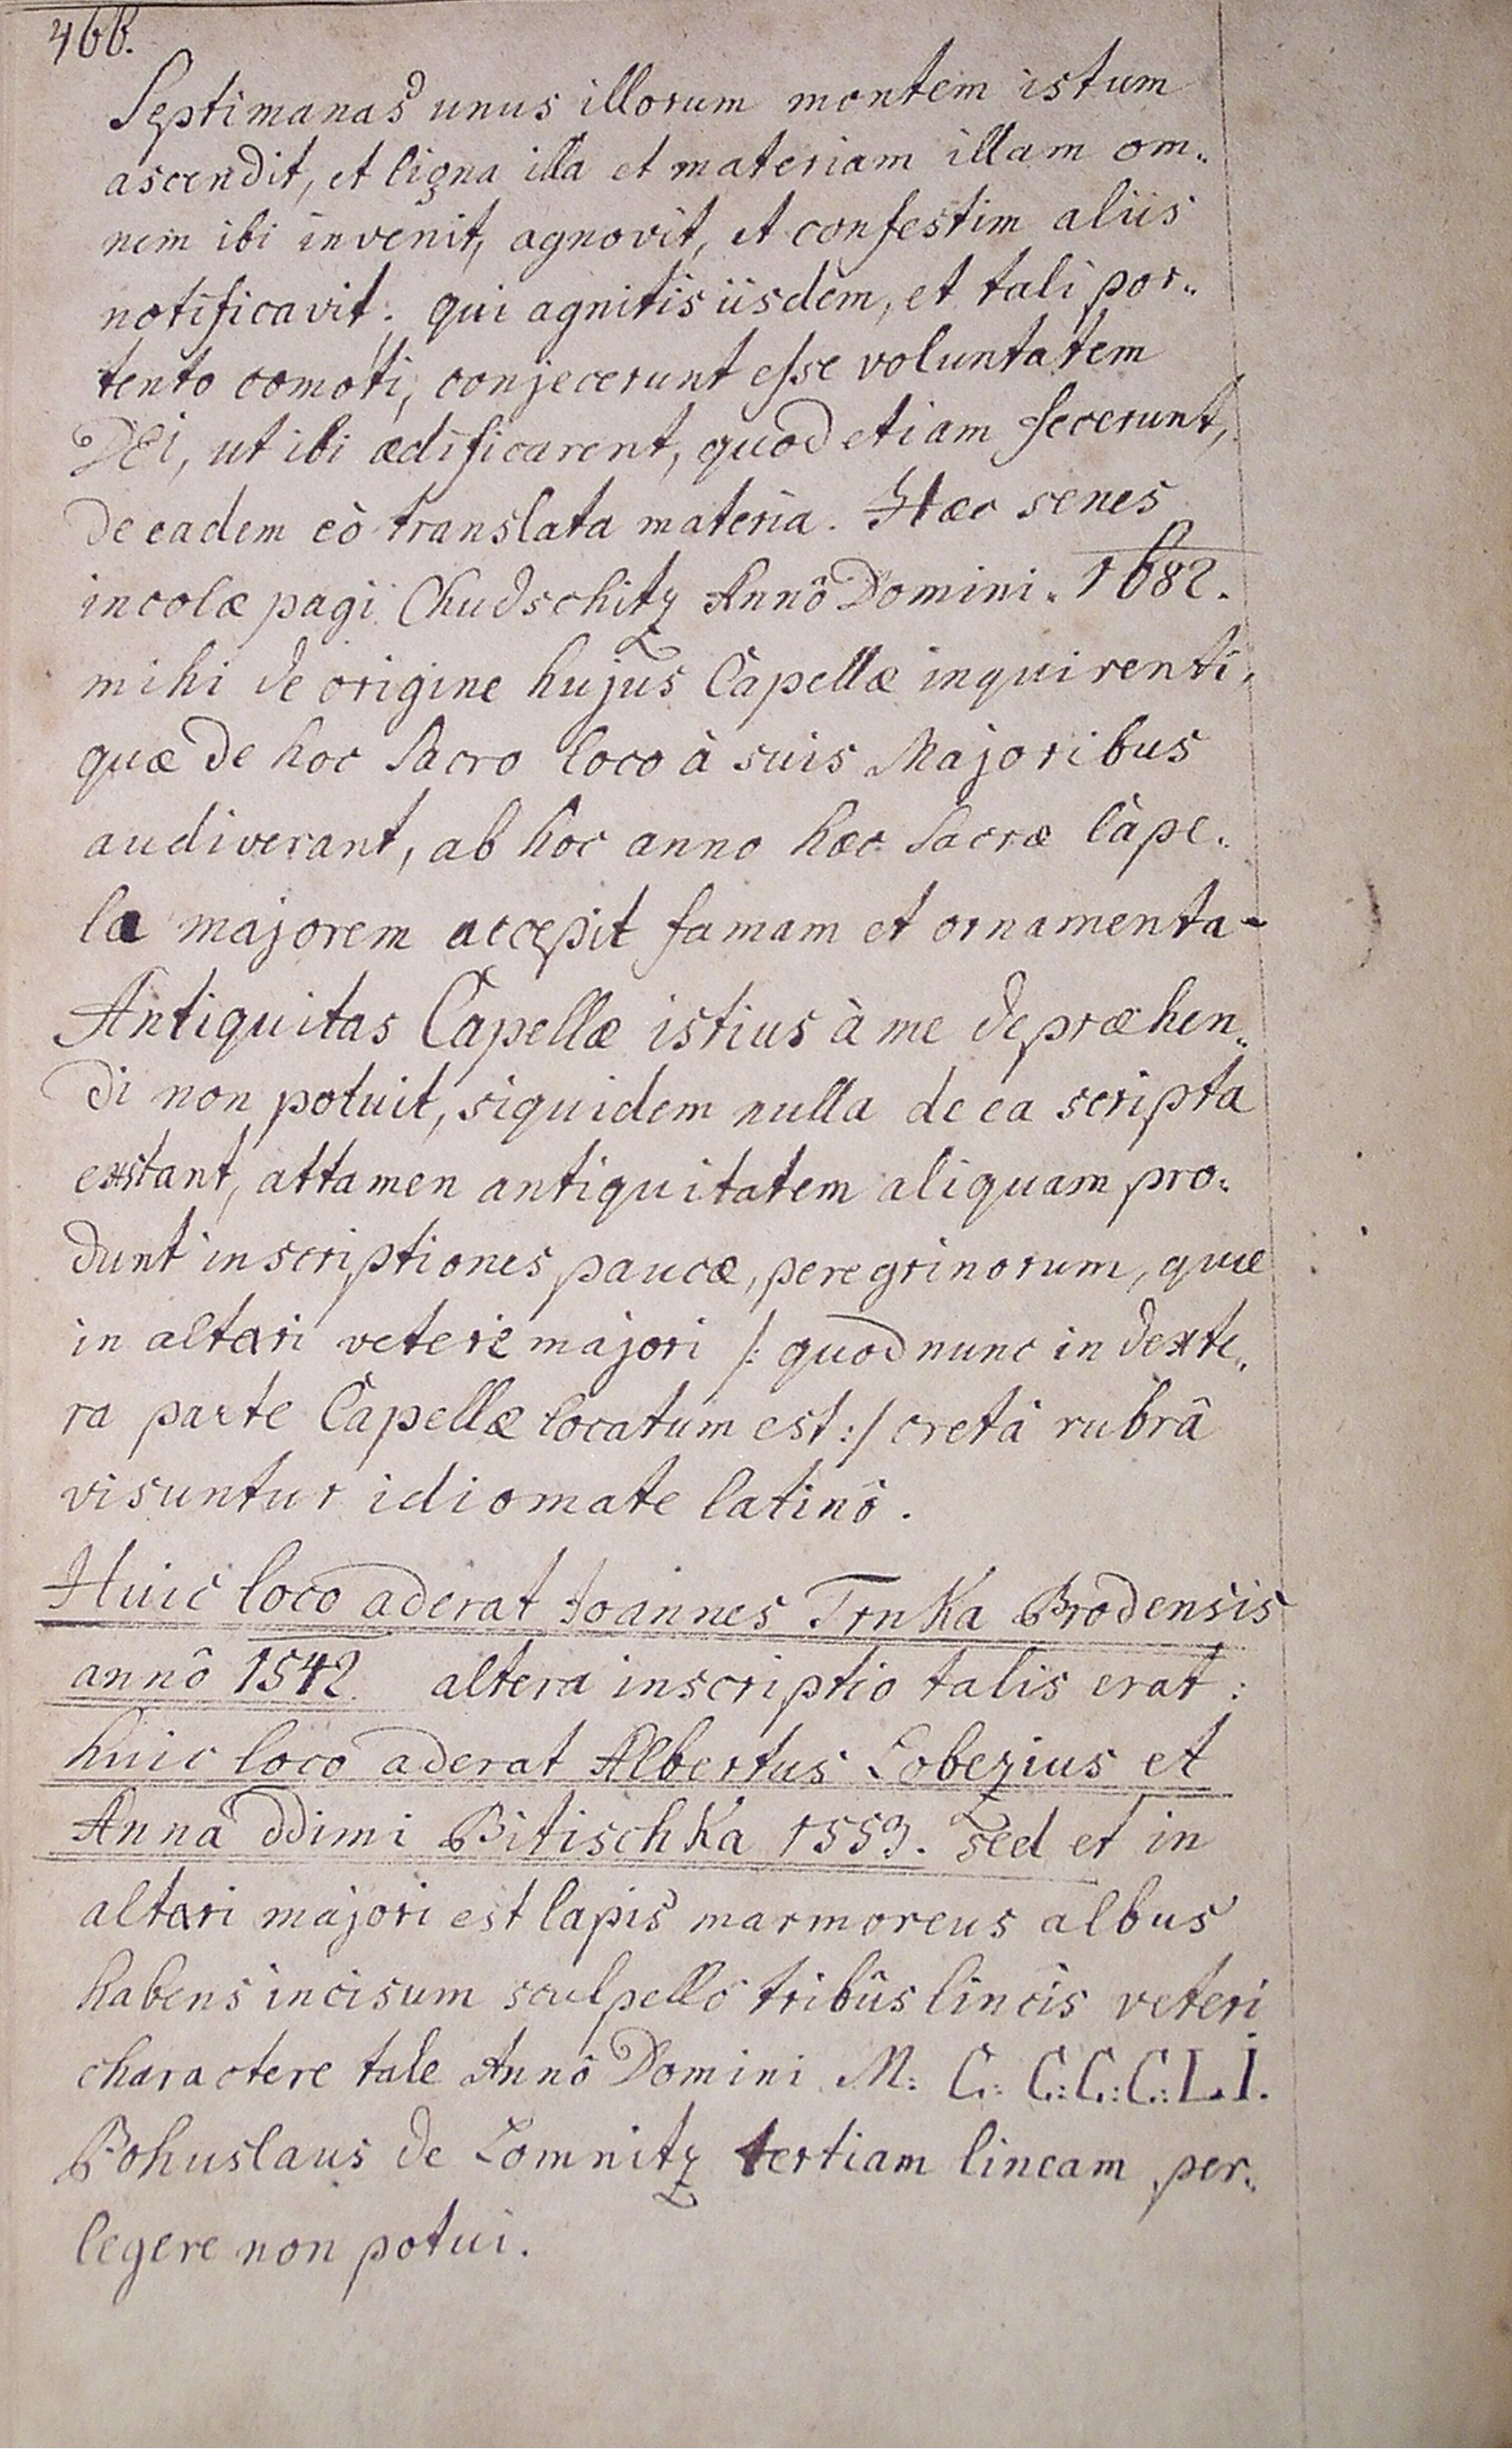 466.
Septimanas unus illorum montem istum
ascendit, et ligna illa et materiam illam om„
nem ibi invenit, agnovit, et confestim aliis
notificavit: qui agnitis iisdem, et tali por„
tento comoti, conjecerunt esse voluntatem
DEI, ut ibi ædificarent, quod etiam fecerunt,
de eadem eò translata materia. Hæc senes
incolæ pagi Chudschitz Annô Domini. 1682.
mihi de origine hujus Capellæ inquirenti,
quæ de hoc Sacro loco à suis Majoribus
audiverant, ab hoc anno hæc Sacræ Cape„
la majorem accepit famam et ornamenta-
Antiquitas Capellæ istius à me depræhen„
di non potuit, siquidem nulla de ea scripta
exstant, attamen antiquitatem aliquam pro„
dunt inscriptiones paucæ, peregrinorum, quæ
in altari veteri majori /: quod nunc in dexte„
ra parte Capellæ locatum est :/ cretâ rubrâ
visuntur idiomate latinô.
Huic loco aderat Joannes Trnka Brodensis
annô 1542. altera inscriptio talis erat:
huic loco aderat Albertus Lobezius et
Anna ddimi Bitischka 1553. sed et in
altari majori est lapis marmoreus albus
habens incisum sculpello tribûs lineis veteri
charactere tale Annô Domini M: C: C:C:C:L.I.
Bohuslaus de Lomnitz tertiam lineam per„
legere non potui.